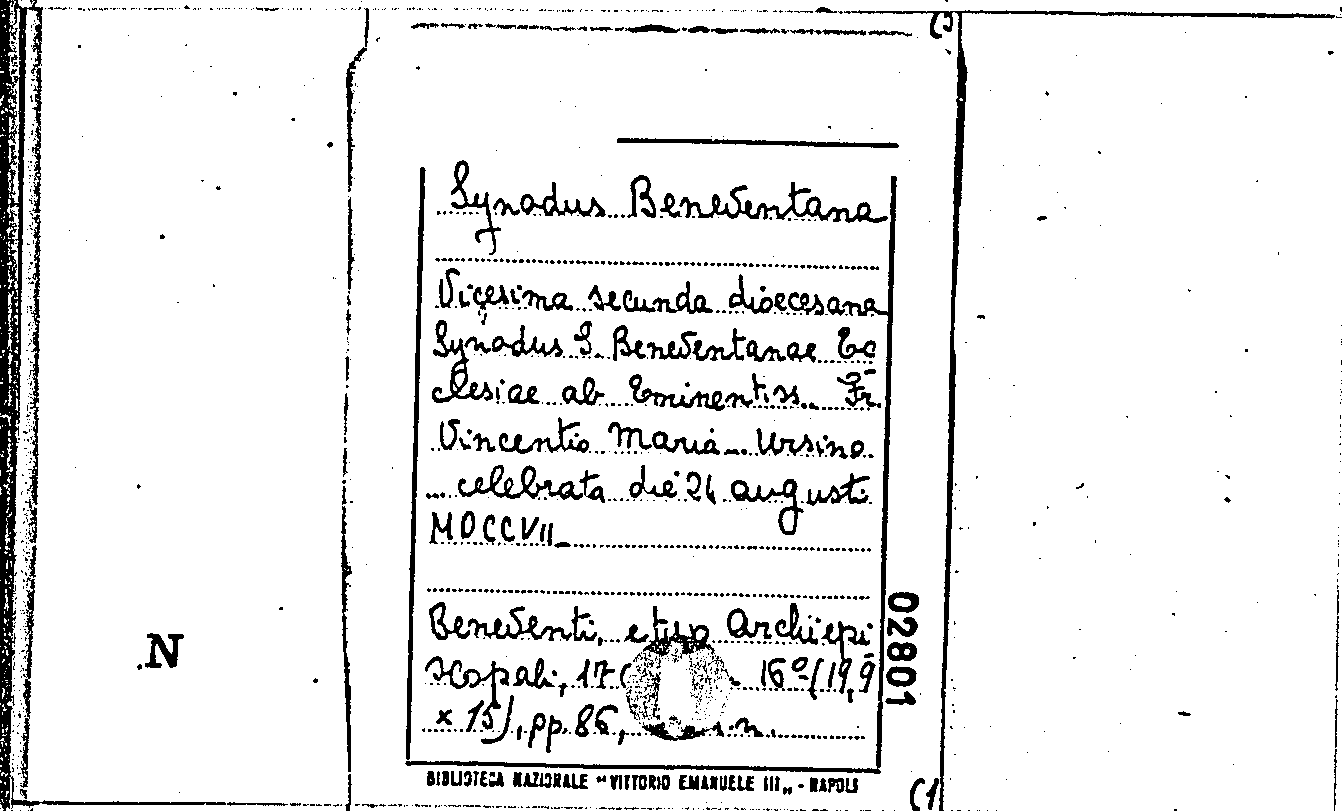 Synodus Beneventana
Vicesima secunda dioecesana
Synodus S. Beneventanae Ec
clesiae ab Eminentiss. Fr.
Vincentio Maria... Ursino.
... celebrata die 24 augusti
MDCCVII_
Beneventi, e typ Archiepi
scopali, 16º (19,9
x 15), pp. 86,
BIBLIOTECA NAZIONALE "VITTORIO EMANUELE III" - NAPOLI
02801
N